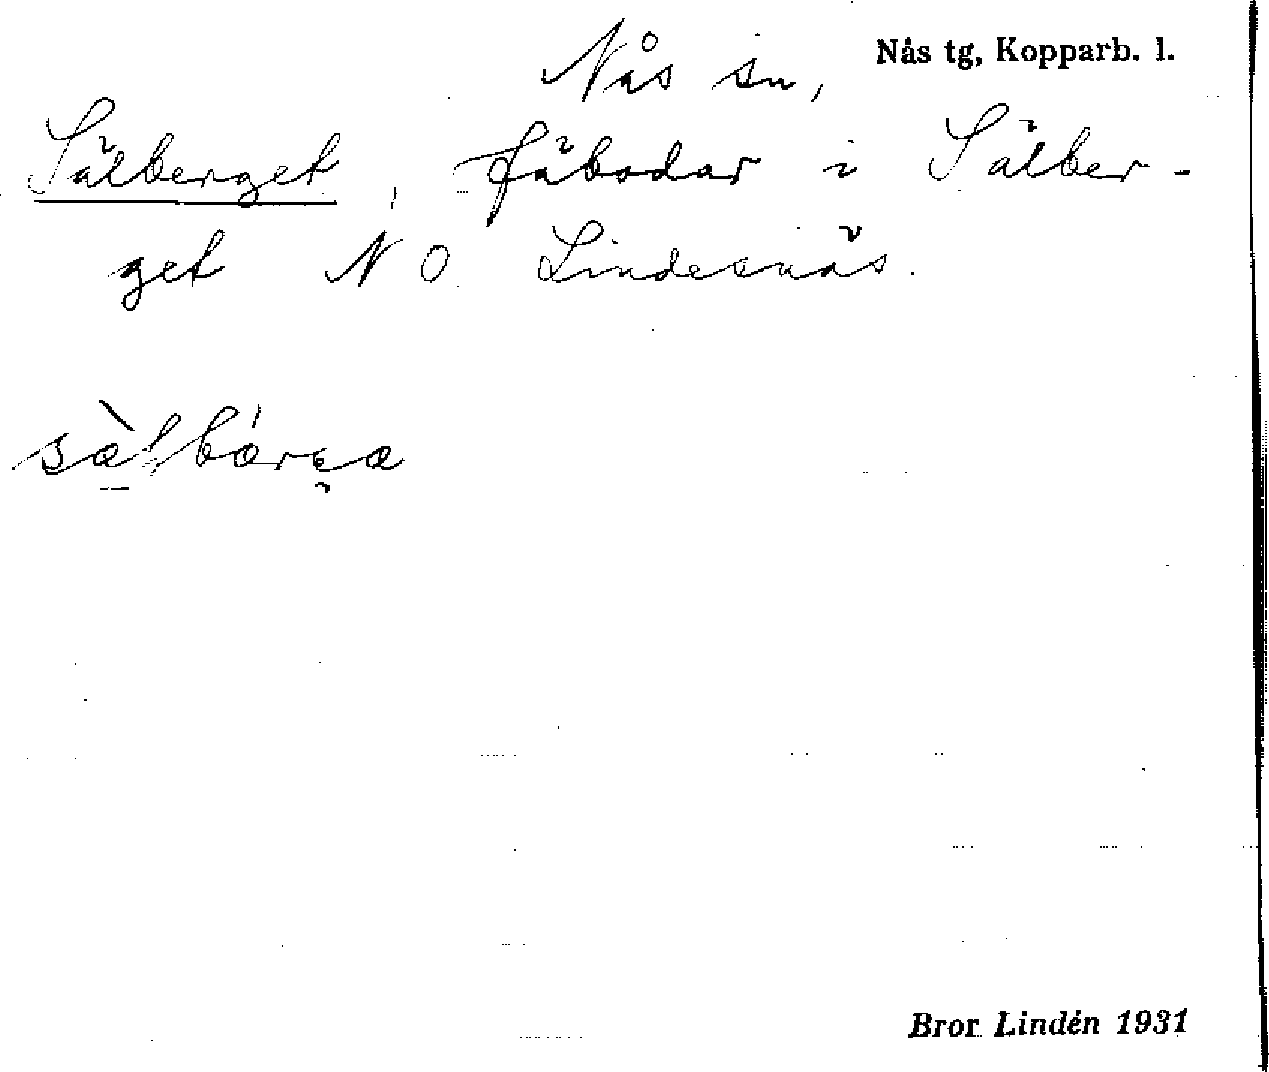 Nås sn, Nås tg, Kopparb. l.
Sälberget, fäbodar i Sälber-
get NO Lindesnäs.
Bror Lindén 1931